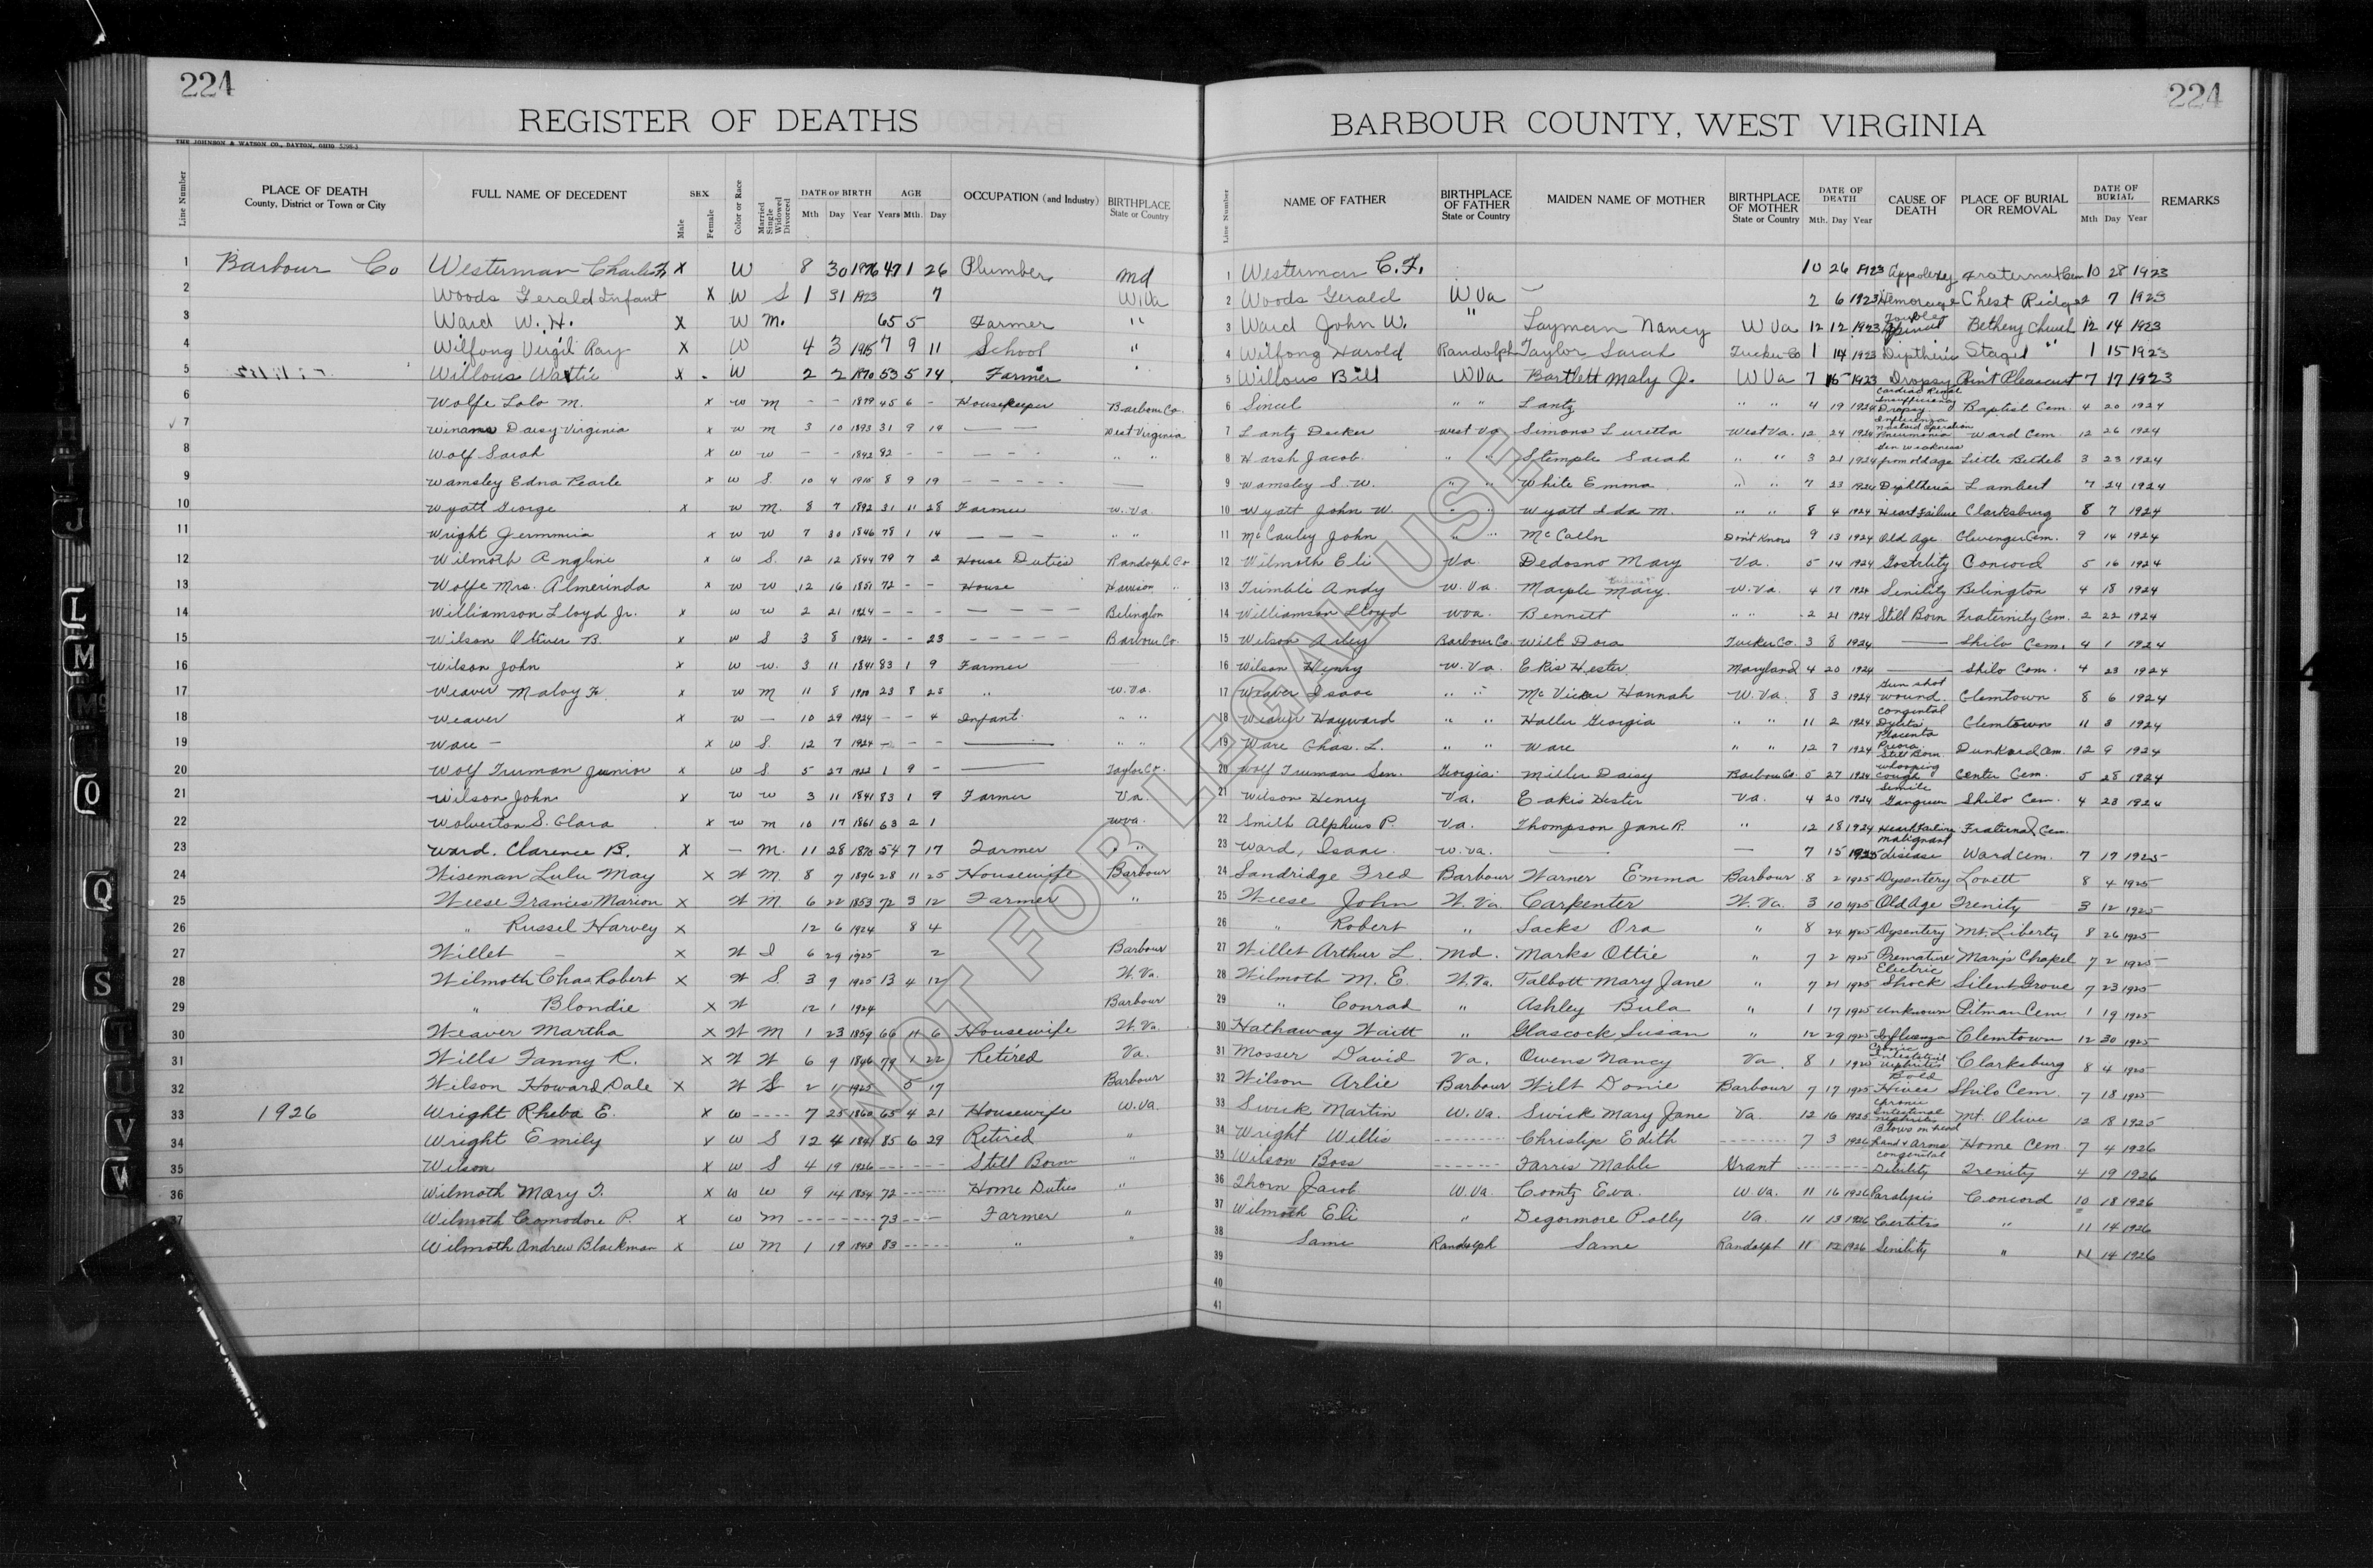 224
REGISTER OF DEATHS
THE JOHNSON & WATSON CO., DAYTON, OHIO
Line Number PLACE OF DEATH County, District or Town or City FULL NAME OF DECEDENT SEX Male Female Color or Race Married Single Widowed Divorced DATE OF BIRTH Mth Day Year AGE Years Mth. Day OCCUPATION (and Industry) BIRTHPLACE State or Country
1 Barbour Co Westerman Charles F. X W 8 30 1876 47 1 26 Plumber Md
2 Woods Gerald Infant X W S 1 31 1923 7 W.Va
3 Ward W. H. X W M. 65 5 Farmer "
4 Wilfong Virgil Ray X W 4 3 1915 7 9 11 School "
5 X W 2 2 1870 53 5 14 Farmer "
6 Wolfe Lolo M. X W M - - 1879 45 6 - Housekeeper Barbour Co.
7 Winans Daisy Virginia X W M 3 10 1893 31 9 14 — — West Virginia
8 Wolf Sarah X W W - - 1842 82 - - - - - " "
9 Wamsley Edna Pearle X W S. 10 4 1915 8 9 19 - - - - - —
10 Wyatt George X W M. 8 7 1892 31 11 28 Farmer W. Va.
11 Wright Jemmmia X W W 7 30 1846 78 1 14 — — — " "
12 Wilmoth Angline X W S. 12 12 1844 79 7 2 House Duties Randolph Co
13 Wolfe Mrs. Almerinda X W W 12 16 1851 72 - - House Harrison "
14 Williamson Lloyd Jr. X W W 2 21 1924 - - - - - - - - Belington
15 Wilson Oliver B. X W S 3 8 1924 - - 23 - - - - - Barbour Co.
16 Wilson John X W W. 3 11 1841 83 1 9 Farmer —
17 Weaver Maloy F. X W M 11 8 1900 23 8 25 " W. Va.
18 Weaver X W — 10 29 1924 - - 4 Infant " "
19 Ware - X W S. 12 7 1924 - - - — " "
20 Wolf Truman Junior X W S 5 27 1922 1 9 - — Taylor Co.
21 Wilson John X W W 3 11 1841 83 1 9 Farmer Va.
22 Wolverton S. Clara X W M 10 17 1861 63 2 1 W Va.
23 Ward. Clarence B. X - M. 11 28 1870 54 7 17 Farmer " "
24 Wiseman Lulu May X W M. 8 7 1896 28 11 25 Housewife Barbour
25 Weese Francis Marion X W M. 6 22 1853 72 3 12 Farmer "
26 " Russel Harvey X 12 6 1924 8 4
27 Willet - X W S 6 29 1925 2 Barbour
28 Wilmoth Chas Robert X W S. 3 9 1925 13 4 12 W. Va.
29 " Blondie X W 12 1 1924 Barbour
30 Weaver Martha X W M 1 23 1859 66 11 6 Housewife W. Va
31 Wills Fanny R. X W W 6 9 1846 79 1 22 Retired Va.
32 Wilson Howard Dale X W S 2 11 1925 5 17 Barbour
33 1926 Wright Rheba E. X W ---- 7 25 1860 65 4 21 Housewife W. Va.
34 Wright Emily X W S 12 4 1841 85 6 29 Retired "
35 Wilson X W S 4 19 1926 ------ Still Born "
36 Wilmoth Mary F. X W W 9 14 1854 72 ----- Home Duties "
37 Wilmoth Comodore P. X W M ------- 73 ---- Farmer "
Wilmoth Andrew Blackman X W M 1 19 1843 83 ----- " "
224
BARBOUR COUNTY, WEST VIRGINIA
Line Number NAME OF FATHER BIRTHPLACE OF FATHER State or Country MAIDEN NAME OF MOTHER BIRTHPLACE OF MOTHER State or Country DATE OF DEATH Mth. Day Year CAUSE OF DEATH PLACE OF BURIAL OR REMOVAL DATE OF BURIAL Mth Day Year REMARKS
1 Westerman C. F. 10 26 1923 Appoplexy Fraternal Cem 10 28 1923
2 Woods Gerald W Va 2 6 1923 Hemorage Chest Ridge 2 7 1923
3 Ward John W. " Layman Nancy W Va 12 12 1923 Spinal Betheny Church 12 14 1923
4 Wilfong Harold Randolph Taylor Sarah Tucker Co 1 14 1923 Diptheria " 1 15 1923
5 Bill W Va Bartlett Maly J. W Va 7 15 1923 Dropsy Point Pleasant 7 17 1923
6 Sincel " " Lantz " " 4 19 1924 Cardiac Renal Insufficiency Dropsy Baptist Cem. 4 20 1924
7 Lantz Decker West Va Simons Luretta West Va. 12 24 1924 Influenza Mastoid Operation Pneumonia Ward Cem. 12 26 1924
8 Harsh Jacob " " Stemple Sarah " " 3 21 1924 Gen weakness from old age Little Bethel 3 23 1924
9 Wamsley S. W. " " White Emma " " 7 23 1924 Diphtheria Lambert 7 24 1924
10 Wyatt John W " " Wyatt Ida M. " " 8 4 1924 Heart Failure Clarksburg 8 7 1924
11 McCauley John " " McCalln Don't Know 9 13 1924 Old Age Clevenger Cem. 9 14 1924
12 Wilmoth Eli Va Dedosno Mary Va. 5 14 1924 Concord 5 16 1924
13 Trimble Andy W. Va. Marple Mary. W. Va. 4 17 1924 Senility Belington 4 18 1924
14 Williamson Lloyd W Va. Bennett " " 2 21 1924 Still Born Fraternity Cem. 2 22 1924
15 Wilson Arley Barbour Co Wilt Dora Tucker Co. 3 8 1924 — Shilo Cem. 4 1 1924
16 Wilson Henry W. Va. Ekis Hester. Maryland 4 20 1924 — Shilo Cem. 4 23 1924
17 Weaver Isaac " " McVicker Hannah W. Va. 8 3 1924 Gun shot wound Clemtown 8 6 1924
18 Weaver Hayward " " Haller Georgia " " 11 2 1924 congental Clemtown 11 3 1924
19 Ware Chas. L. " " Ware " " 12 7 1924 Placenta Still Born Dunkard Cem. 12 9 1924
20 Wolf Truman Sen. Georgia Miller Daisy Barbour Co. 5 27 1924 Whooping cough Center Cem. 5 28 1924
21 Wilson Henry Va. Eakis Hester Va. 4 20 1924 Senile Gangreen Shilo Cem. 4 23 1924
22 Smith Alphius P. Va. Thompson Jane R. " 12 18 1924 Heart Failure Fraternal Cem.
23 Ward, Isaac W. Va. — — 7 15 1925 malignant disease Ward Cem. 7 17 1925
24 Sandridge Fred Barbour Warner Emma Barbour 8 2 1925 Dysentery Lovett 8 4 1925
25 Weese John W. Va Carpenter W. Va. 3 10 1925 Old Age Trenity 3 12 1925
26 " Robert " Sacks Ora " 8 24 1925 Dysentery Mt. Liberty 8 26 1925
27 Willet Arthur L. Md. Marks Ottie " 7 2 1925 Premature Marys Chapel 7 2 1925
28 Wilmoth M. E. W. Va. Talbott Mary Jane " 7 21 1925 Electric Shock Silent Grove 7 23 1925
29 " Conrad " Ashley Bula " 1 17 1925 Unknown Pitman Cem 1 19 1925
30 Hathaway Waitt " Glascock Susan " 12 29 1925 Influenza Clemtown 12 30 1925
31 Mosser David Va. Owens Nancy Va 8 1 1925 Cronic Intestitial nephritis Clarksburg 8 4 1925
32 Wilson Arlie Barbour Wilt Donie Barbour 7 17 1925 Bold Hives Shilo Cem. 7 18 1925
33 Swick Martin W. Va. Swick Mary Jane Va. 12 16 1925 Cronic Intestinal nephritis Mt. Olive 12 18 1925
34 Wright Willis -------- Chrislip Edith -------- 7 3 1926 Blows on head hand & Arms Home Cem. 7 4 1926
35 Wilson Boss ------ Farris Mable Grant -------- congenital Debility Trenity 4 19 1926
36 Thorn Jacob W. Va. Coontz Eva. W. Va. 11 16 1926 Paralysis Concord 10 18 1926
37 Wilmoth Eli " Degormore Polly Va. 11 13 1926 " 11 14 1926
38 Same Randolph Same Randolph 11 12 1926 Senility " 11 14 1926
39
40
41
NOT FOR LEGAL USE
J
L
M
Mc
O
Q
S
T
U
V
W